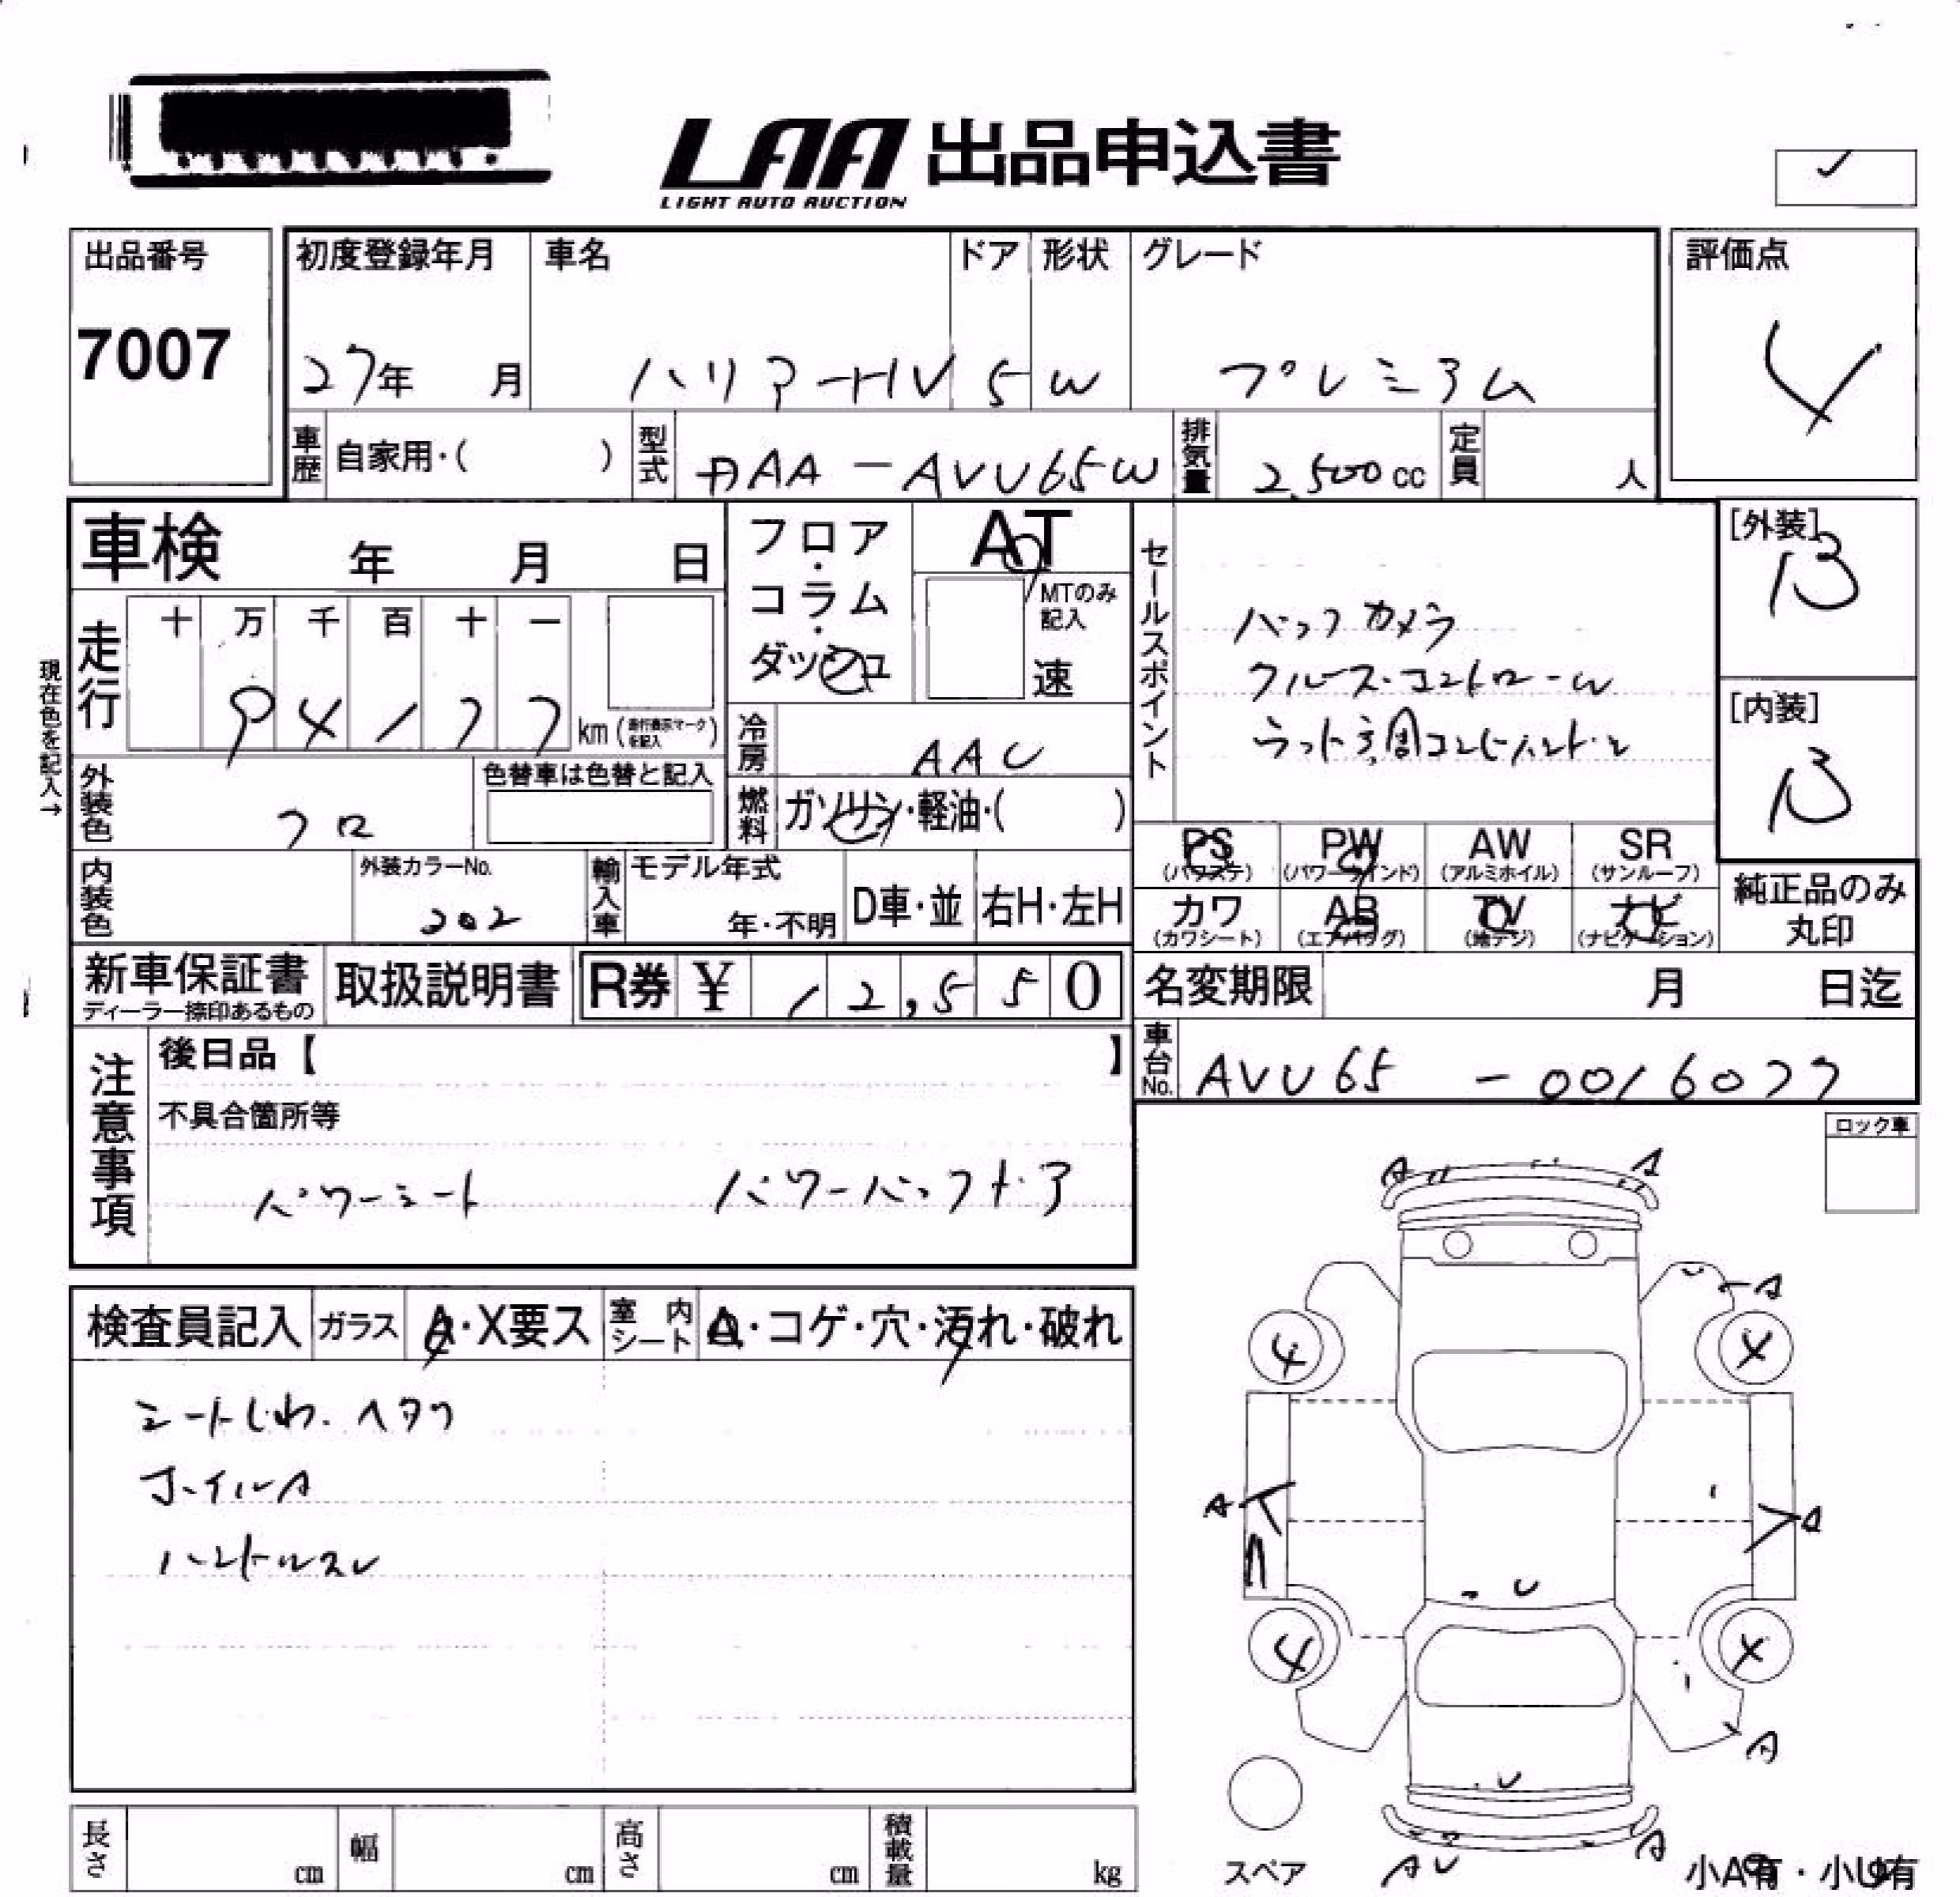 LAA 出品申込書
LIGHT AUTO AUCTION
出品番号
7007
初度登録年月
27年 月
車名
ハリアーHV
ドア
5
形状
W
グレード
プレミアム
評価点
4
車歴 自家用・( )
型式 DAA-AVU65W
排気量 2,500cc
定員 人
車検 年 月 日
フロア・コラム・ダッシュ
AT
MTのみ記入
速
セールスポイント
バックカメラ
クルーズ・コントロール
[外装]
B
[内装]
B
現在色を記入→
走行
十 万 千 百 十 一
9 4 1 7 7 km (走行表示マークを記入)
冷房 AAC
外装色 クロ
色替車は色替と記入
燃料 ガソリン・軽油・( )
PS (パワステ)
PW (パワーウインド)
AW (アルミホイル)
SR (サンルーフ)
カワ (カワシート)
AB (エアバッグ)
TV (地デジ)
ナビ (ナビゲーション)
純正品のみ丸印
内装色
外装カラーNo.
202
輸入車
モデル年式
年・不明
D車・並
右H・左H
新車保証書
ディーラー捺印あるもの
取扱説明書
R券 ¥ 12,550
名変期限 月 日迄
車台No. AVU65 - 0016077
注意事項
後日品【 】
不具合箇所等
パワーシート パワーバックドア
ロック車
検査員記入
ガラス A・X要ス
室内シート A・コゲ・穴・汚れ・破れ
シートしわ.ヘタリ
ホイルA
ハンドルスレ
A A
A
4 4
A A
U
4 4
A
U
A U A
スペア
小A有・小U有
長さ cm
幅 cm
高さ cm
積載量 kg